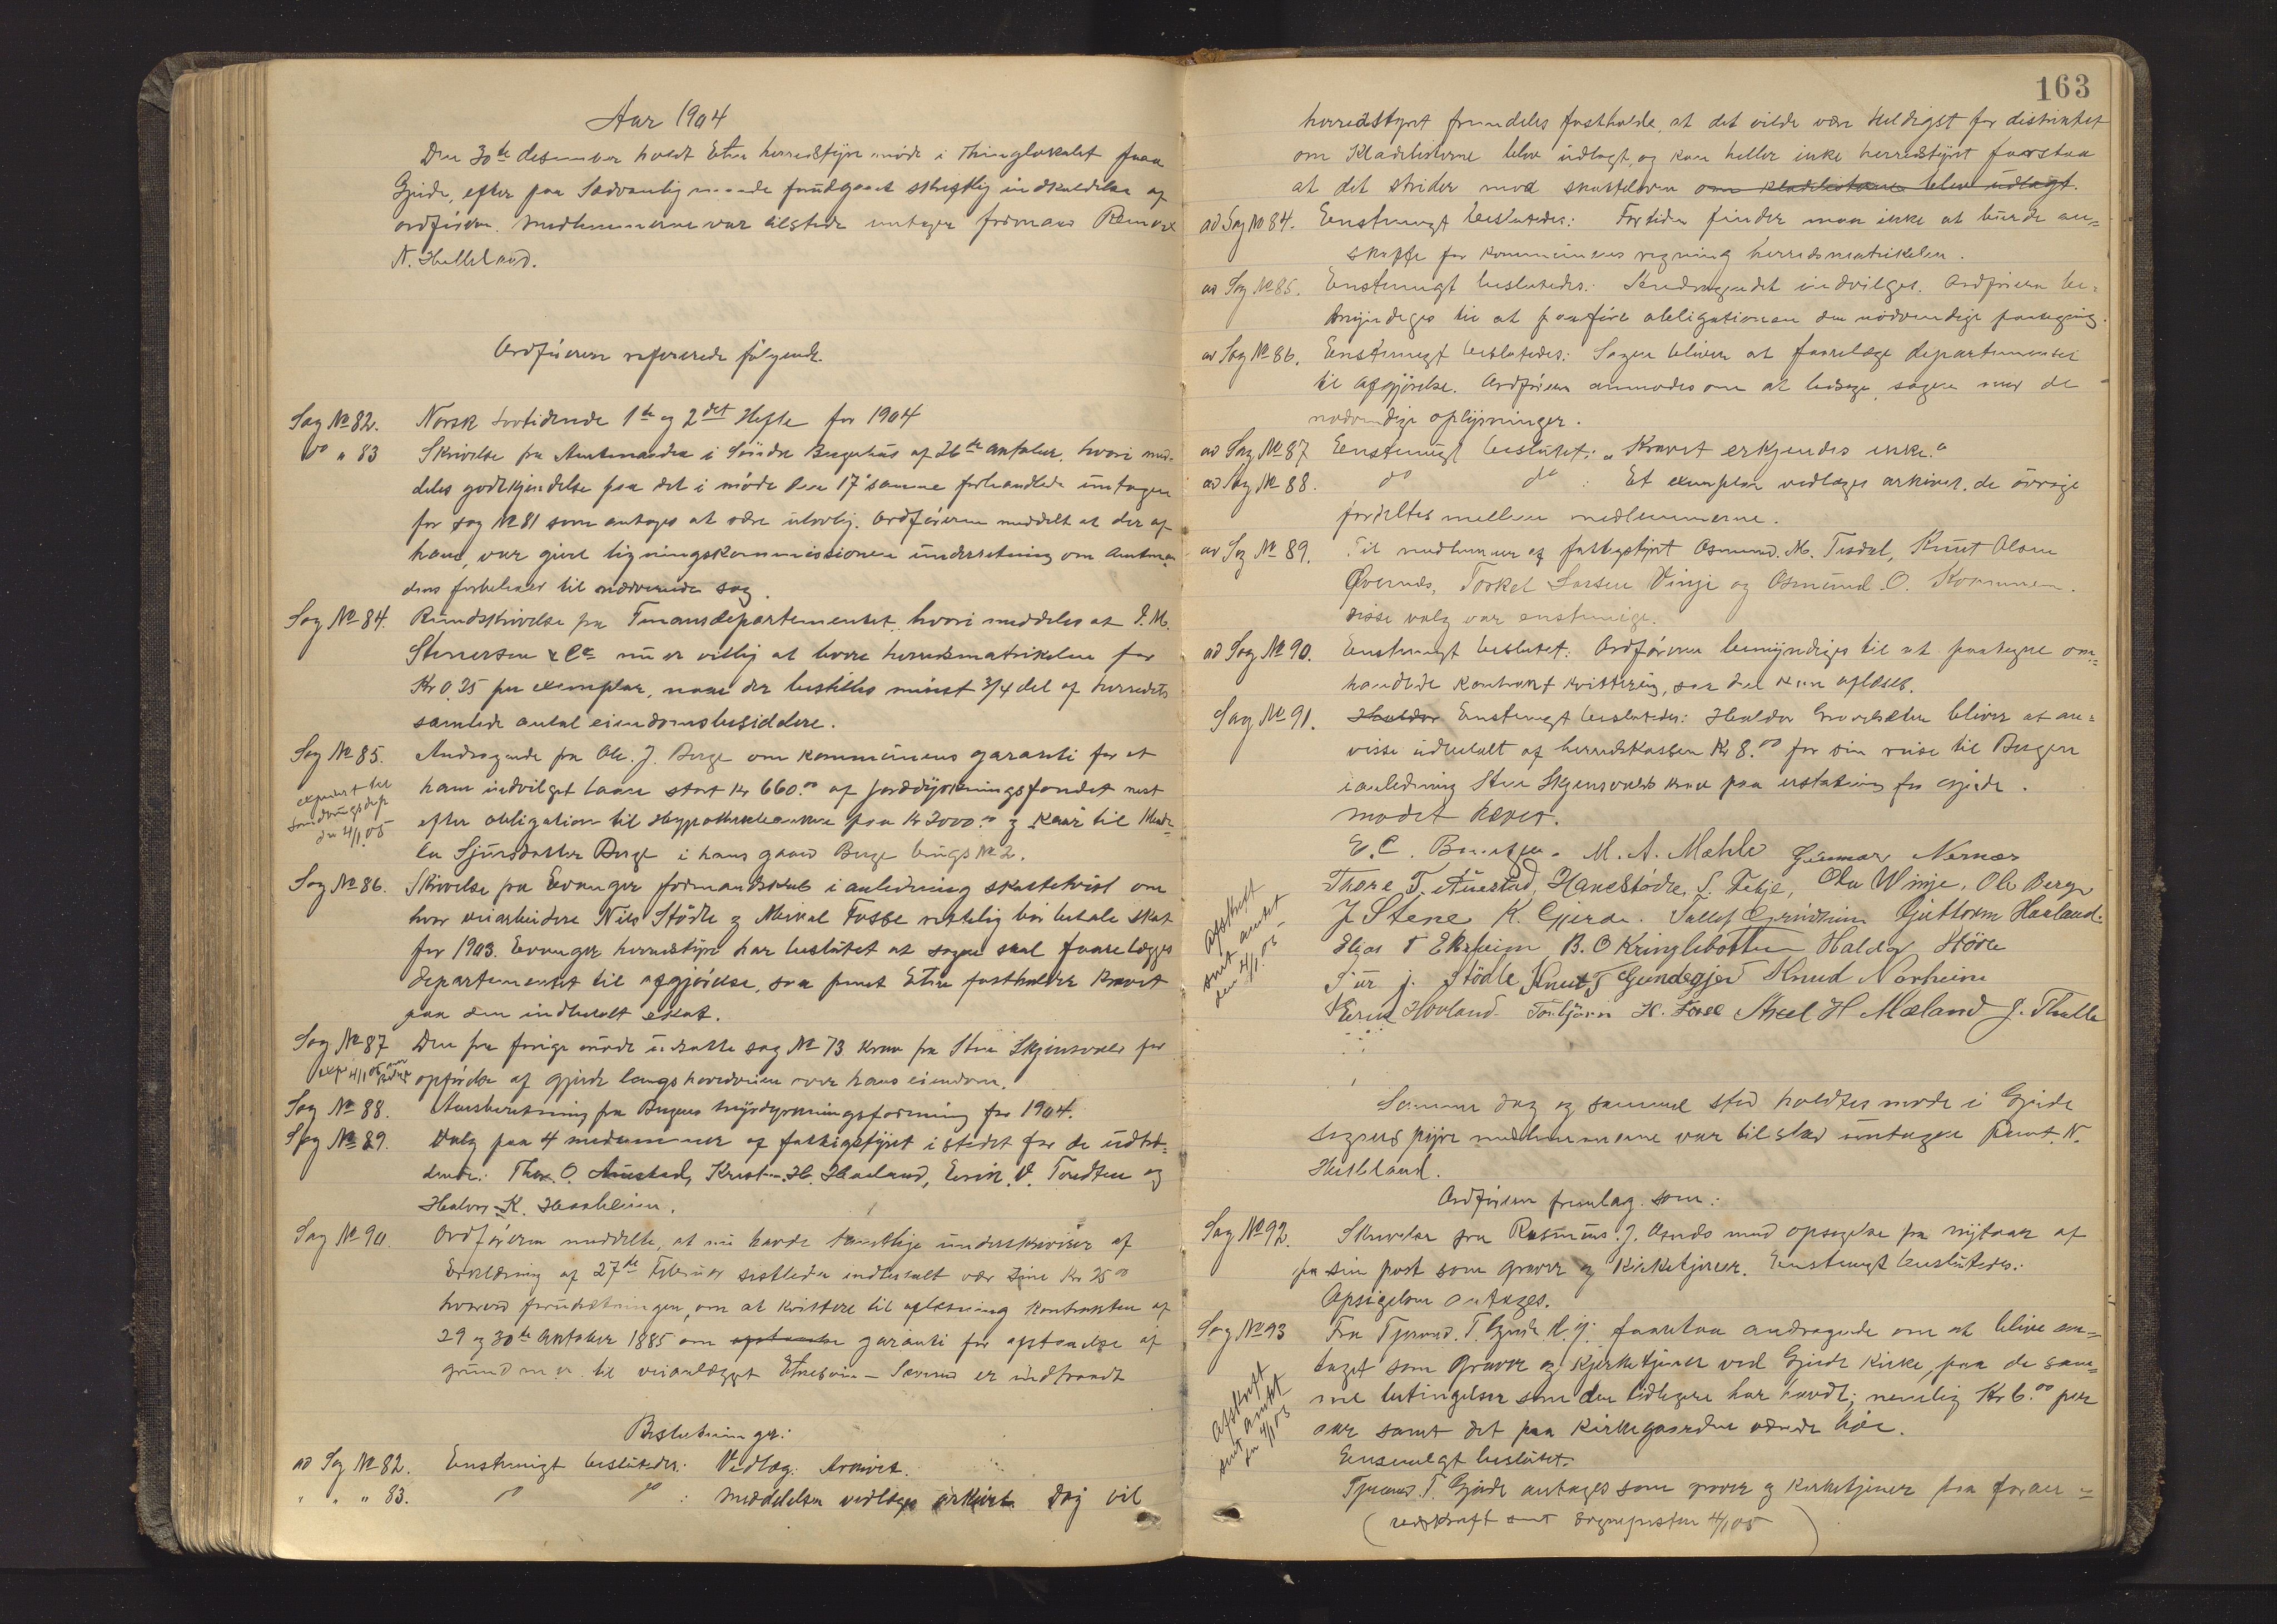 Aar 1904
Den 30te desember holdt Etne herredstyre møde i Thinglokalet paa
Gjerde, efter paa Sædvanlig maade forudgaaet skriftlig indkaldelse af
ordføreren. Medlemmerne var tilstede undtagen formand
N. Helleland.
Ordføreren refererede følgende.
Sag No 82. Norsk Lovtidende 1te og 2det Hefte for 1904
do " 83 Skrivelse fra Amtmanden i Søndre Bergenhus af 26de hvori med-
deles godkjendelse paa det i møde den 17 samme forhandlede undtagen
for sag No 81 som antages at være ulovlig. Ordføreren meddelt at der af
ham, var givet ligningskommissionen underretning om Amtman-
dens forbehold til nærværende sag.
Sag No 84. Rundskrivelse fra Finansdepartementet, hvori meddeles at I. M.
Stenersen & Co nu er villig at levere herredsmatrikelen for
Kr 0.25 per exemplar, naar der bestilles mindst 3/4 del af herredets
samlede antal eiendomsbesiddere.
Sag No 85. Andragende fra Ole. J. Berge om kommunens garanti for et
ham indvilget laan stort Kr 660.00 af Jorddyrkningsfondet nest
efter obligation til Hypothekbanken paa Kr 2000.00 og Kaar til
Sjursdatter Berge i hans gaard Berge brugs No 2.
expedert til
Landbrugsdep
den 4/1 05
Sag No 86. Skrivelse fra Evanger formandskab i anledning skattetvist om
hvor veiarbeidere Nils Stødle og Mikal Fosse rettelig bør betale skat
for 1903. Evanger herredstyre har beslutet at sagen skal forelægges
departementet til afgjørelse, saa fremt Etne fastholder kravet
paa den indbetalt skat.
Sag No 87 Den fra forrige møde udsatte sag No 73 krav fra Sten Skjensvold for
opførelse af gjerde langs hovedveien over hans eiendom.
Sag No 88. Aarsberetning fra Bergens Myrdyrkningsforening for 1904.
Sag No 89. Valg paa 4 medlemmer af fattigstyret i stedet for de udtræ-
dende: Thor. O. Austad, Kristen. H. Haaland, Erik. V. Tredten og
Halvor K. Haaheim.
Sag No 90. Ordføreren meddelte, at nu havde samtlige underskriver af
Erklæring af 27de Februar sistleden indbetalt vær sine Kr 25.00
hvorved forudsætningen, om at kvittere til aflæsning kontrakten af
29 og 30te Oktober 1885 om garanti for afstaaelse af
grund m. v. til veianlægget Etnesøen - Sævereid er indtraadt
Beslutninger:
ad Sag No 82. Enstemigt beslutedes: Vedlæg. Arkivet.
" " " 83. do do : Meddelelsen vedlæges arkivet. Dog vil
163
herredstyret fremdeles fastholde, at det vilde være heldigst for distriktet
om Kladelisterne blev udlagt, og kan heller ikke herredstyret forstaa
at det strider mod skatteloven om kladelisterne blev udlagt.
ad Sag No 84. Eenstemigt beslutedes: Fortiden finder man ikke at burde an-
skaffe for kommunens regning herredsmatrikelen.
ad Sag No 85. Enstemigt beslutedes: Andragendet indvilges. Ordføreren be-
myndiges til at paaføre obligationen den nødvendige paategning.
ad Sag No 86. Enstemigt beslutedes: Sagen bliver at forelægge departementet
til afgjørelse. Ordføreren anmodes om at ledsage sagen med de
nødvendige oplysninger.
ad Sag No 87 Eenstemigt beslutet: "Kravet erkjendes ikke."
ad Sag No 88. do do : Et exemplar vedlæges arkivet. de øvrige
fordeltes mellem medlemmerne.
ad Sag No 89. Til medlemmer af fattigstyret Osmund. M. Tesdal, Knut Olson
Øvernes, Torkel Larsen Vinje og Osmund. O. Kammen.
disse valg var enstemige.
ad Sag No 90. Enstemigt beslutet: Ordføreren bemyndiges til at paategne om-
handlede kontrakt kvittering, saa den kan aflæses.
Sag No 91. Enstemigt beslutedes: Haldor bliver at an-
visse udbetalt af herredskassen Kr 8.00 for sin reise til Bergen
i anledning Sten Skjensvolds krav paa erstatning for gjerde.
mødet hævet.
M. A. Mæhle Gunnar Nernæs
Thore T. Austad, Hans Stødle, S. Fetje, Ola Winje, Ole Berge
J Stene K. Gjerde. Tallef Grindheim Guttorm Haaland.
Elias T Ekrheim B. O Kringlebotten Haldor Høie
Sjur J. Stødle Knut T Grindegjerd Knud Norheim
Erik Hovland Torbjørn H. Fosse Aksel H Mæland J. Thulle
Afskrift
sent amtet
den 4/1. 05
Samme dag og samme sted holdtes møde i Gjerde
sogns medlemmerne var tilsted undtagen Knut. N.
Helleland.
Ordføreren fremlag. som:
Sag No 92. Skrivelse fra Rasmus. J. med opsigelse fra nytaar af
fra sin post som graver og Kirketjener. Enstemigt beslutedes:
Opsigelsen antages.
Sag No 93 Fra Tjerand. T. Gjerde foretaa andragende om at blive an-
taget som Graver og Kjerketjener ved Gjerde Kirke, paa de sam-
me betingelser som den tidligere har havdt; nemlig Kr 6.00 per
aar samt det paa Kirkegaarden værende høe.
Eenstemigt beslutet.
Tjerand. T. Gjerde antages som graver og Kirketjener paa foran-
Afskrift
sent amtet
den 4/1 05
( sent Sogneprsten 4/1 05 )